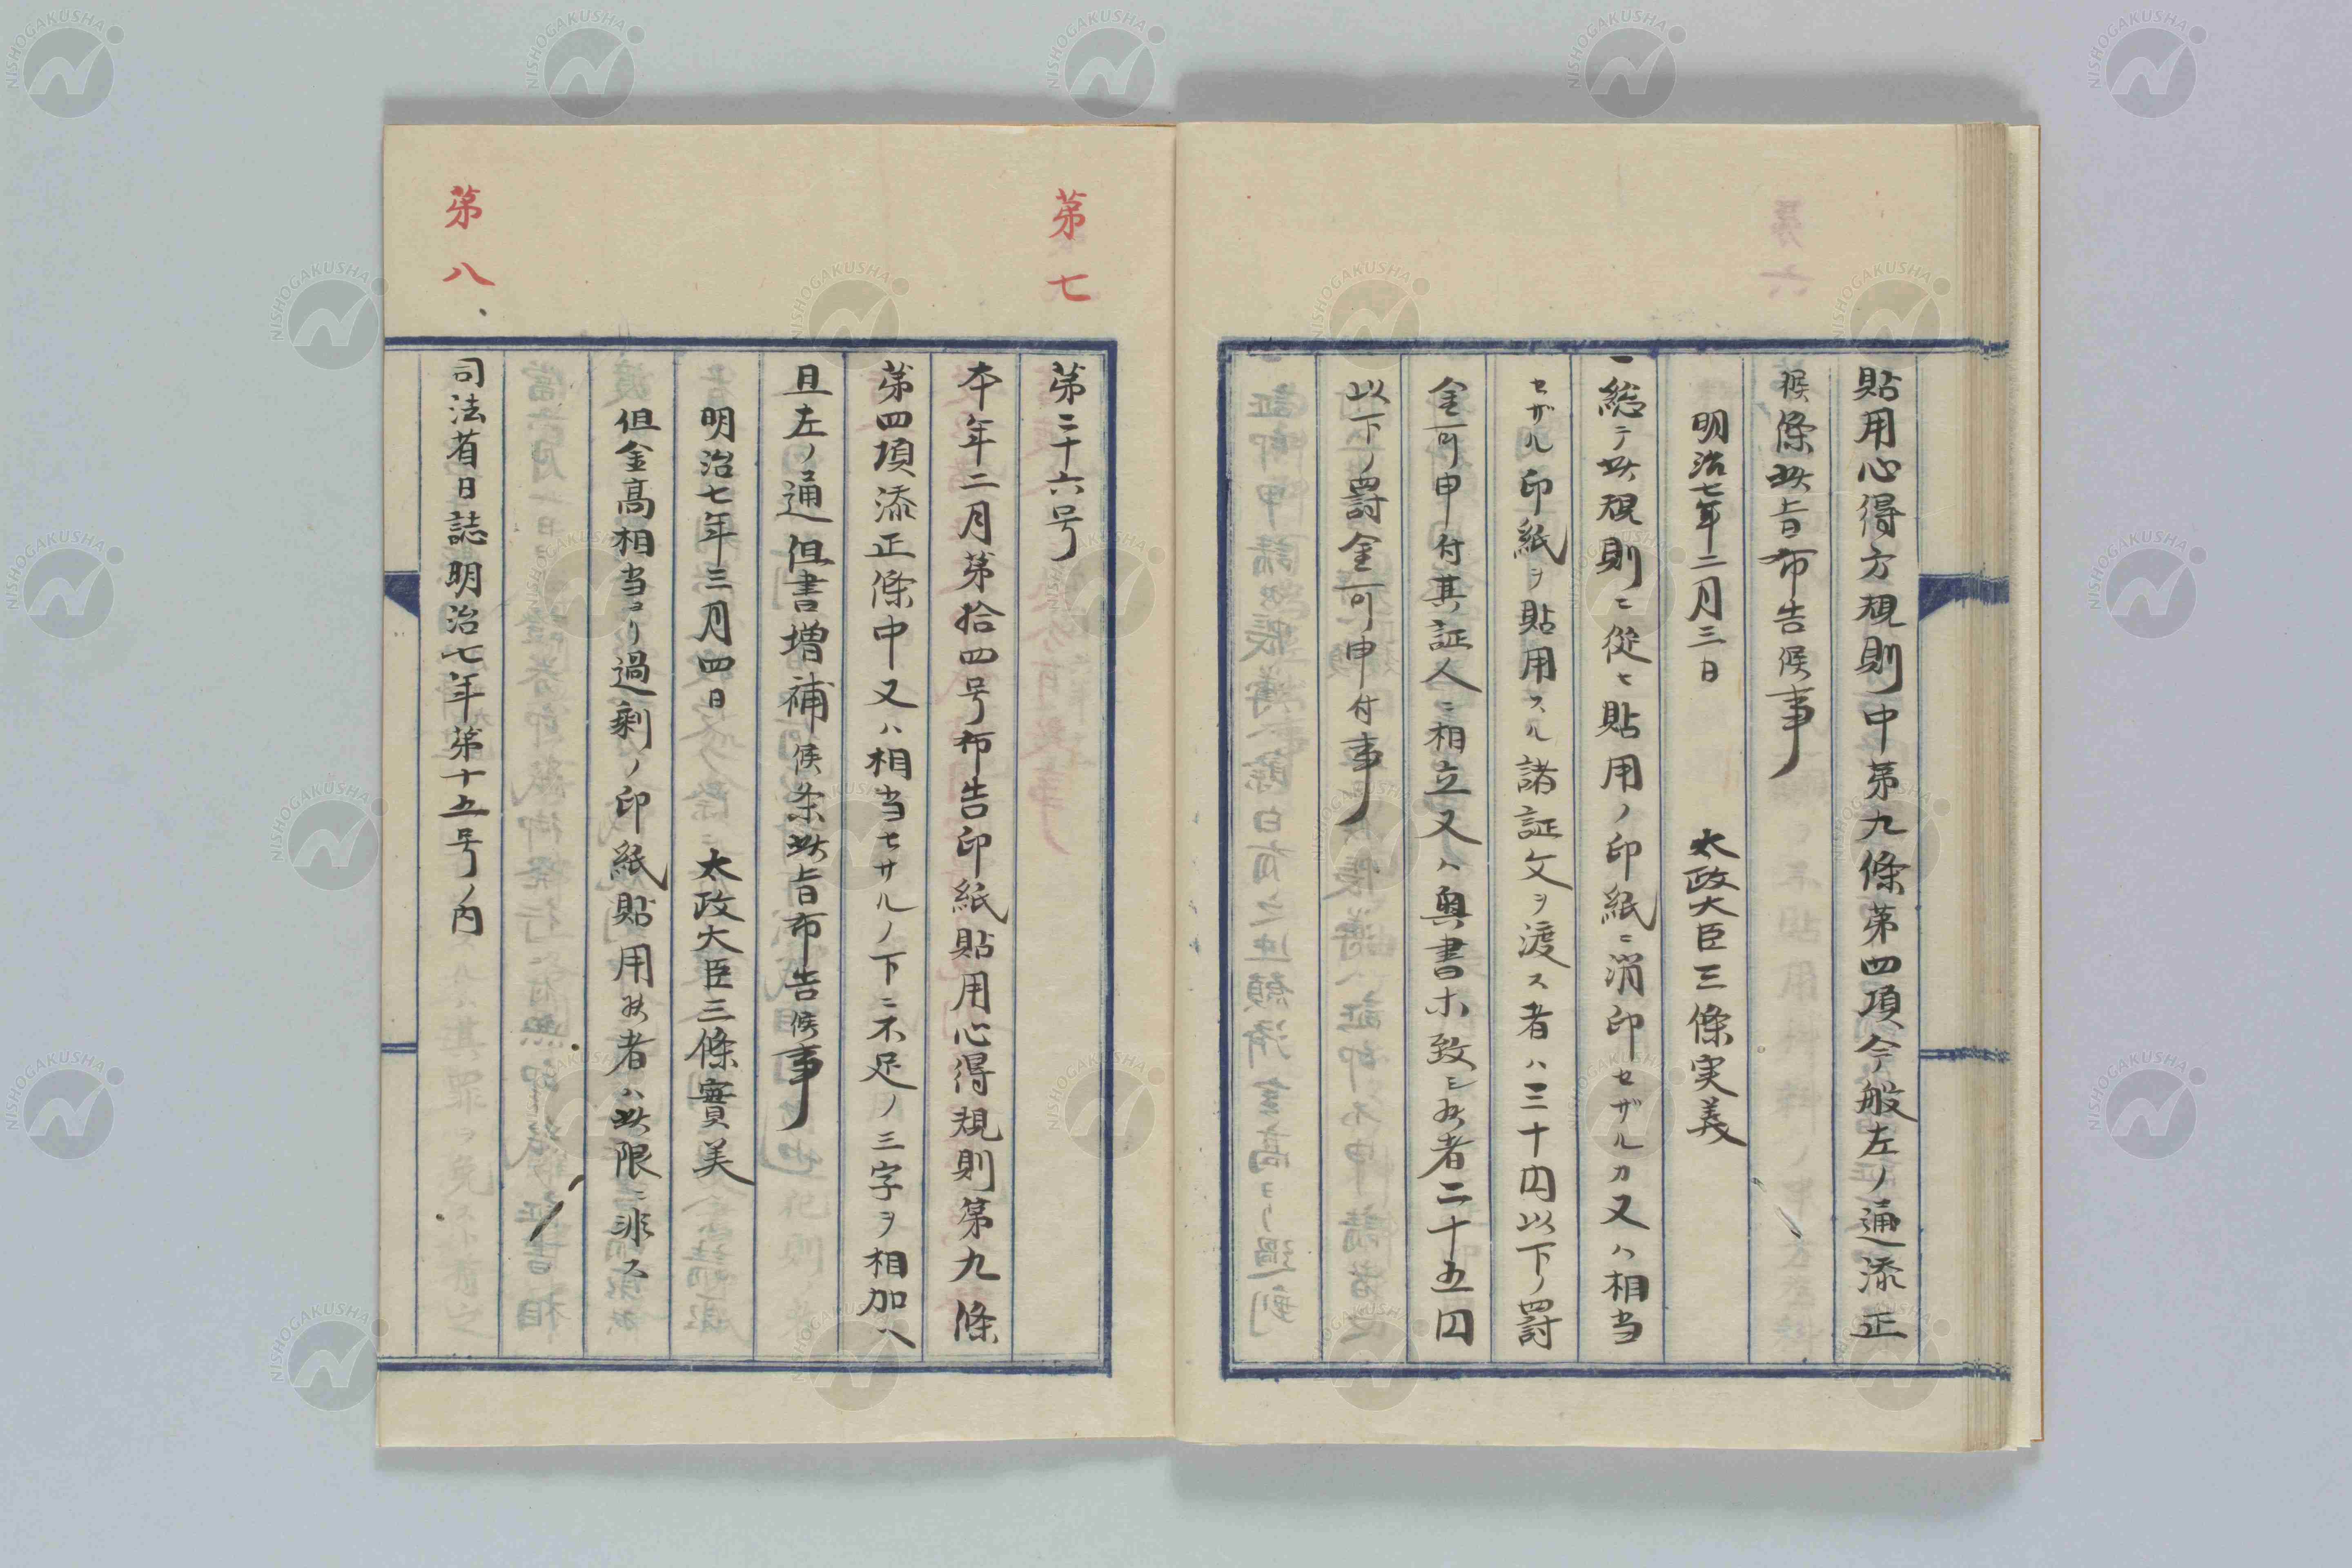 貼用心得方規則中第九條第四項今般左ノ通添正
候條此旨布告候事
明治七年二月三日 太政大臣三條実義
一総テ此規則ニ従ヒ貼用ノ印紙ニ消印セザルカ又ハ相当
セザル印紙ヲ貼用スル諸証文ヲ渡ス者ハ三十円以下ノ罰
金可申付其証人ニ相立又ハ奥書ホ致シ候者二十五円
以下ノ罰金可申付事
第七
第二十六号
本年二月第拾四号布告印紙貼用心得規則第九條
第四項添正條中又ハ相当セサルノ下ニ不足ノ三字ヲ相加ヘ
且左ノ通但書増補候条此旨布告候事
明治七年三月四日 太政大臣三條實美
但金高相当ヨリ過剰ノ印紙貼用候者ハ此限ニ非ス
第八
司法省日誌明治七年第十五号ノ内
NISHOGAKUSHA